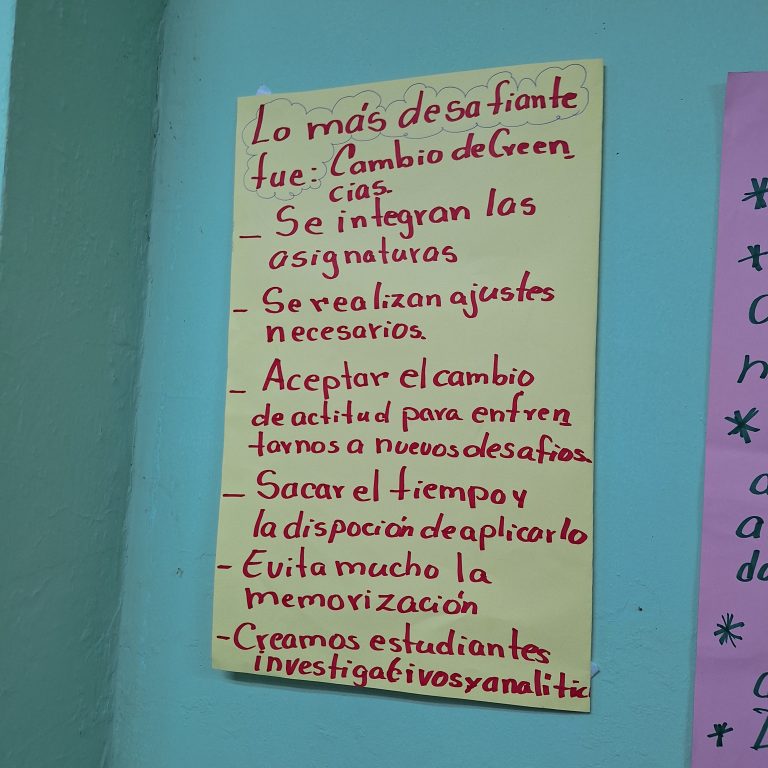 Lo más desafiante
fue: Cambio de Creen_
cias.
_ Se integran las
asignaturas
_ Se realizan ajustes
necesarios.
_ Aceptar el cambio
de actitud para enfren_
tarnos a nuevos desafios.
_ Sacar el tiempo y
la dispoción de aplicarlo
- Evita mucho la
memorización
- Creamos estudiantes
investigativos y analitic